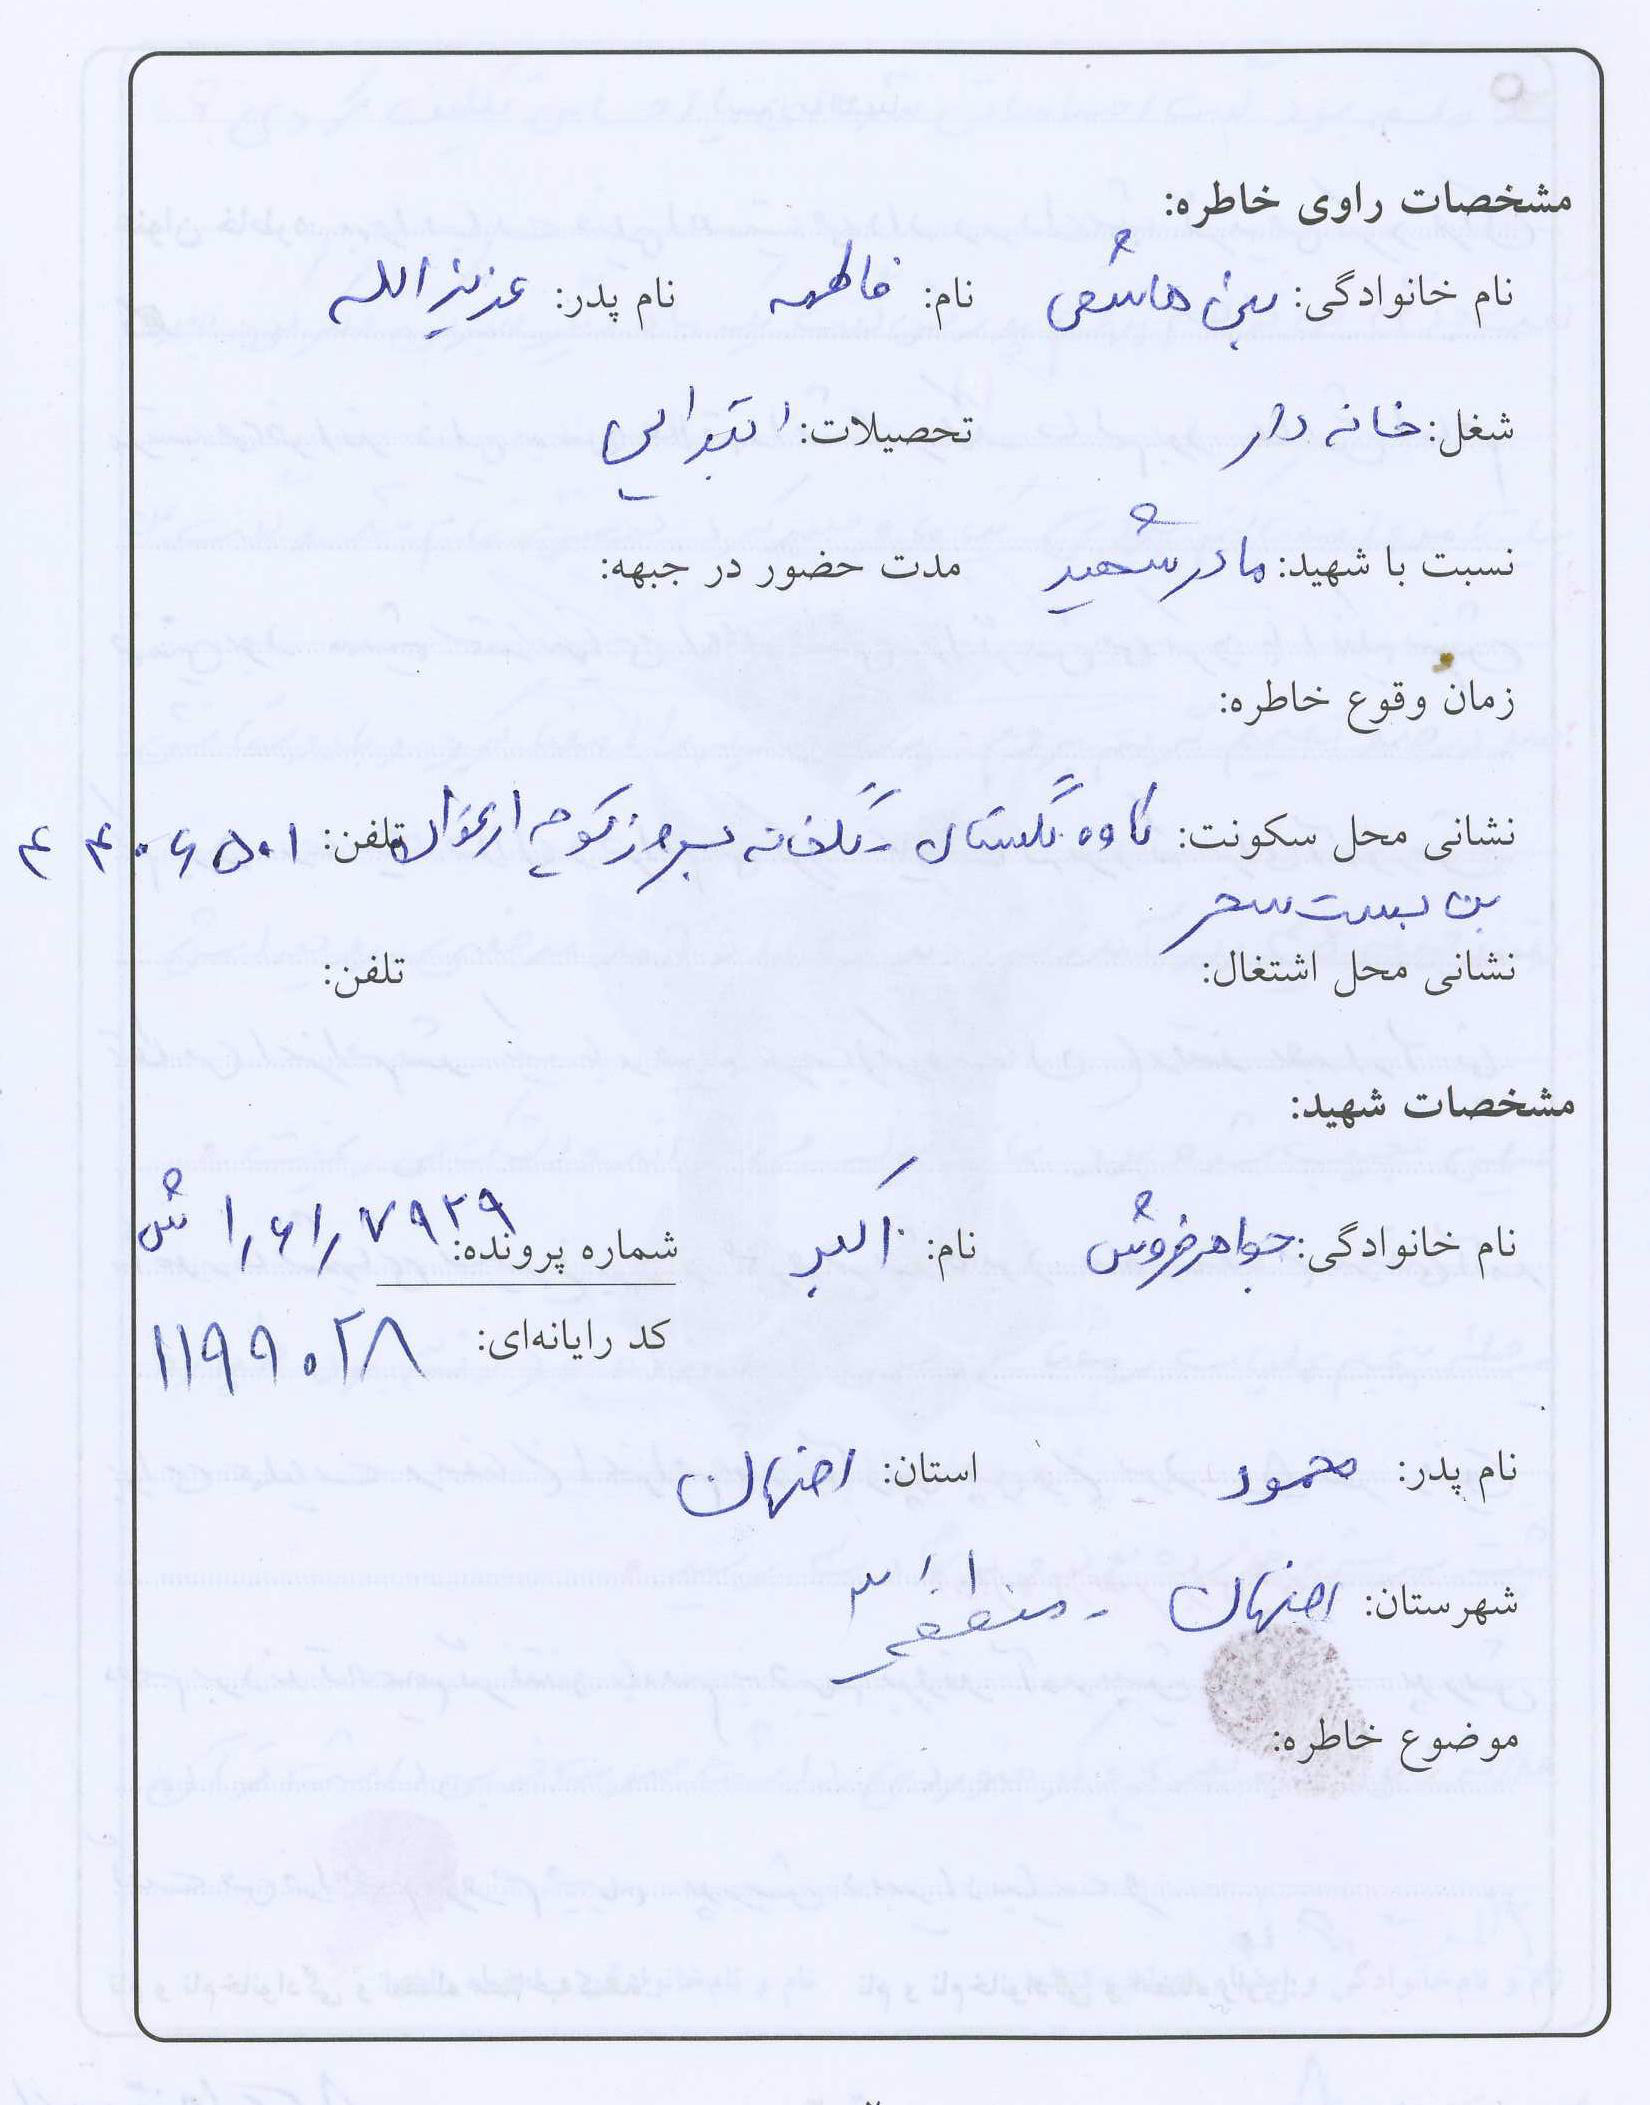 مشخصات راوی خاطره:
نام خانوادگی: بنی هاشمی نام: فاطمه نام پدر: عزیزالله
شغل: خانه دار تحصیلات: ابتدایی
نسبت با شهید: مادر شهید مدت حضور در جبهه:
زمان وقوع خاطره:
نشانی محل سکونت: کاوه گلستان - گلخانه کوچه ارغوان تلفن: ۴۴۰۶۵۰۱
بن بست سحر
نشانی محل اشتغال: تلفن:
مشخصات شهید:
نام خانوادگی: جواهرفروش نام: اکبر شماره پرونده: ۷۹۲۹/۶۱/۱ ش
کد رایانه‌ای: ۱۱۹۹۰۲۸
نام پدر: محمود استان: اصفهان
شهرستان: اصفهان - منطقه ۳
موضوع خاطره: